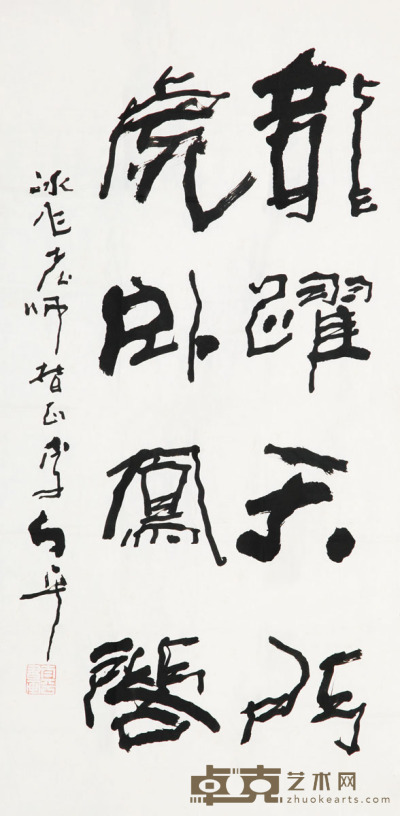 龍躍天門
虎卧鳳閣
冰 老师指正
卓克艺术网
zhuokearts.com